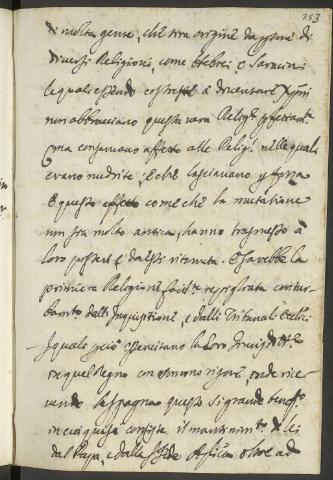 353
di molta gente, che tira origine da persone di
diversi Religioni, come Hebrei, e Saracini
le quali essendo costretti à diventare Xpni
non abbracciano questa vera Relig.e
ma conservano affetto alle Relig.i nelle quali
erano nudrite, e che lasciavano p forza
e questo affetto come che la mutatione
non sia molto antica, hanno trasmesso à
loro posteri e da essi ritenuta. E sarebbe la
primiera Religione
dall' Inquisitione, e dalli Tribunali
I quali essercitano la loro
in quel Regno con sommo rigore, onde rice-
vendo la spagna questo si grande
in cui quasi consiste il di lei
dal Papa, e dalla Sede oltre ad